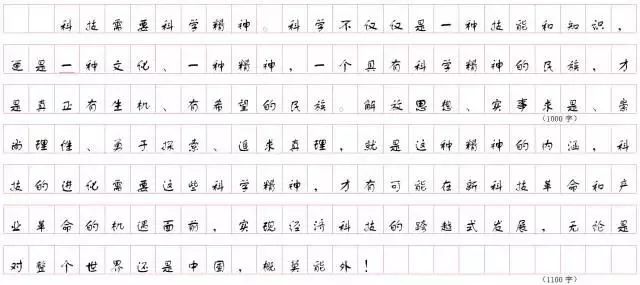 科技需要科学精神。科学不仅仅是一种技能和知识，
还是一种文化、一种精神，一个具有科学精神的民族，才
是真正有生机、有希望的民族。解放思想、实事求是、崇
(1000字)
尚理性、勇于探索、追求真理，就是这种精神的内涵，科
技的进化需要这些科学精神，才有可能在新科技革命和产
业革命的机遇面前，实现经济科技的跨越式发展，无论是
对整个世界还是中国，概莫能外！
(1100字)